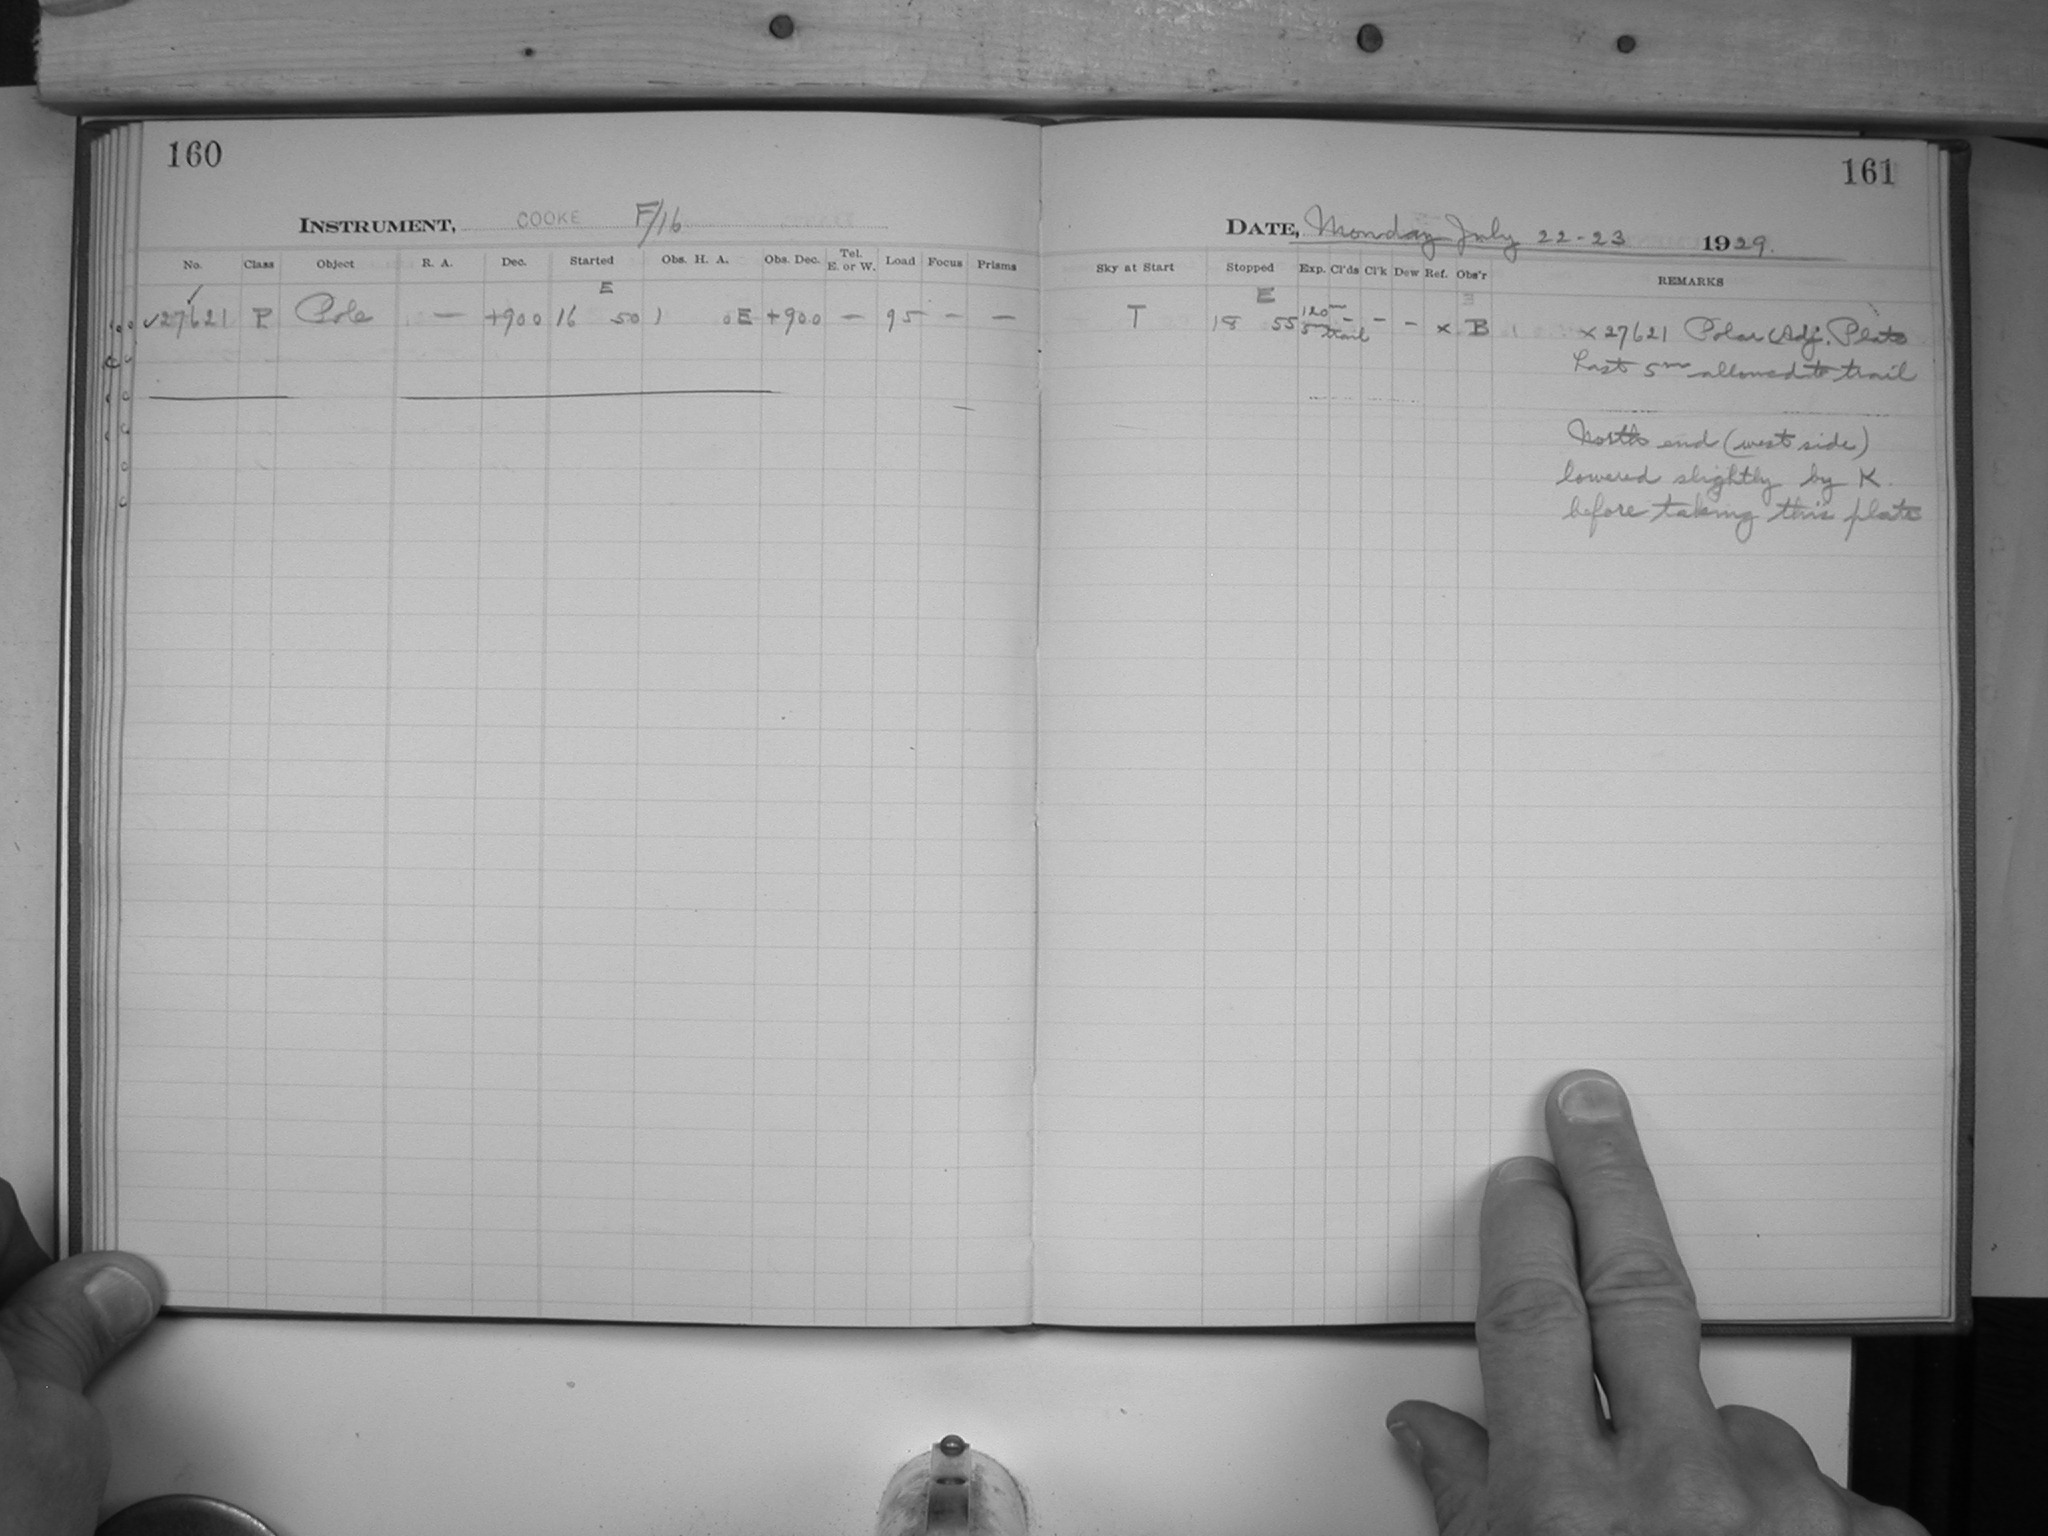 160
INSTRUMENT, COOKE F/16
No. Class Object R. A. Dec. Started Obs. H. A. Obs. Dec. Tel. E. or W. Load Focus Prisms
E
✓27621 P Pole — +90 0 16 50 1 0E +90.0 — 95 – —
161
DATE, Monday July 22-23 1929.
Sky at Start Stopped Exp. Cl'ds Cl'k Dew Ref. Obs'r REMARKS
E
T 18 55 120m 5m trail – – – x B x 27621 Polar Adj. Plate
Last 5m allowed to trail
North end (west side)
lowered slightly by K.
before taking this plate